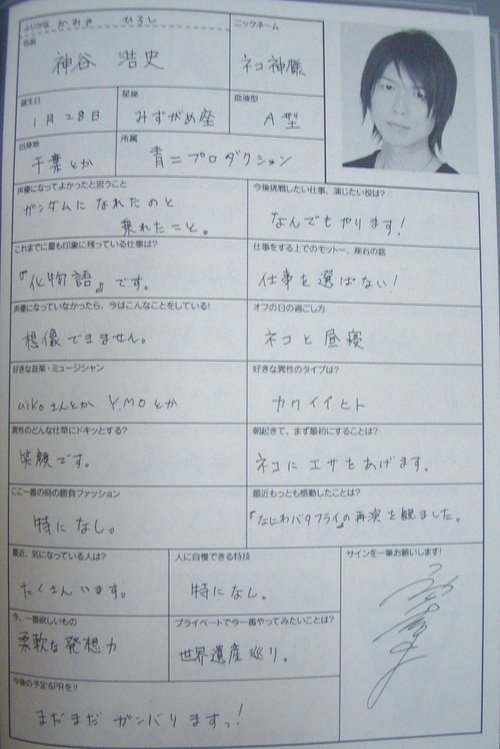 ふりがな かみや ひろし
名前
神谷 浩史
ニックネーム
ネコ神様
誕生日
1月28日
星座
みずがめ座
血液型
A型
出身地
千葉とか
所属
青二プロダクション
声優になってよかったと思うこと
ガンダムになれたのと
乗れたこと。
今後挑戦したい仕事、演じたい役は?
なんでもやります!
これまでに最も印象に残っている仕事は?
『化物語』です。
仕事をする上でのモットー、座右の銘
仕事を選ばない!
声優になっていなかったら、今はこんなことをしている!
想像できません。
オフの日の過ごし方
ネコと昼寝
好きな音楽・ミュージシャン
aikoさんとか YMOとか
好きな異性のタイプは?
カワイイヒト
異性のどんな仕草にドキッとする?
笑顔です。
朝起きて、まず最初にすることは?
ネコにエサをあげます。
ここ一番の時の勝負ファッション
特になし。
最近もっとも感動したことは?
『なにわバタフライ』の再演を観ました。
最近、気になっている人は?
たくさんいます。
人に自慢できる特技
特になし。
サインを一筆お願いします!
今、一番欲しいもの
柔軟な発想力
プライベートで今一番やってみたいことは?
世界遺産巡り。
今後の予定&PRを!!
まだまだ ガンバりますっ!